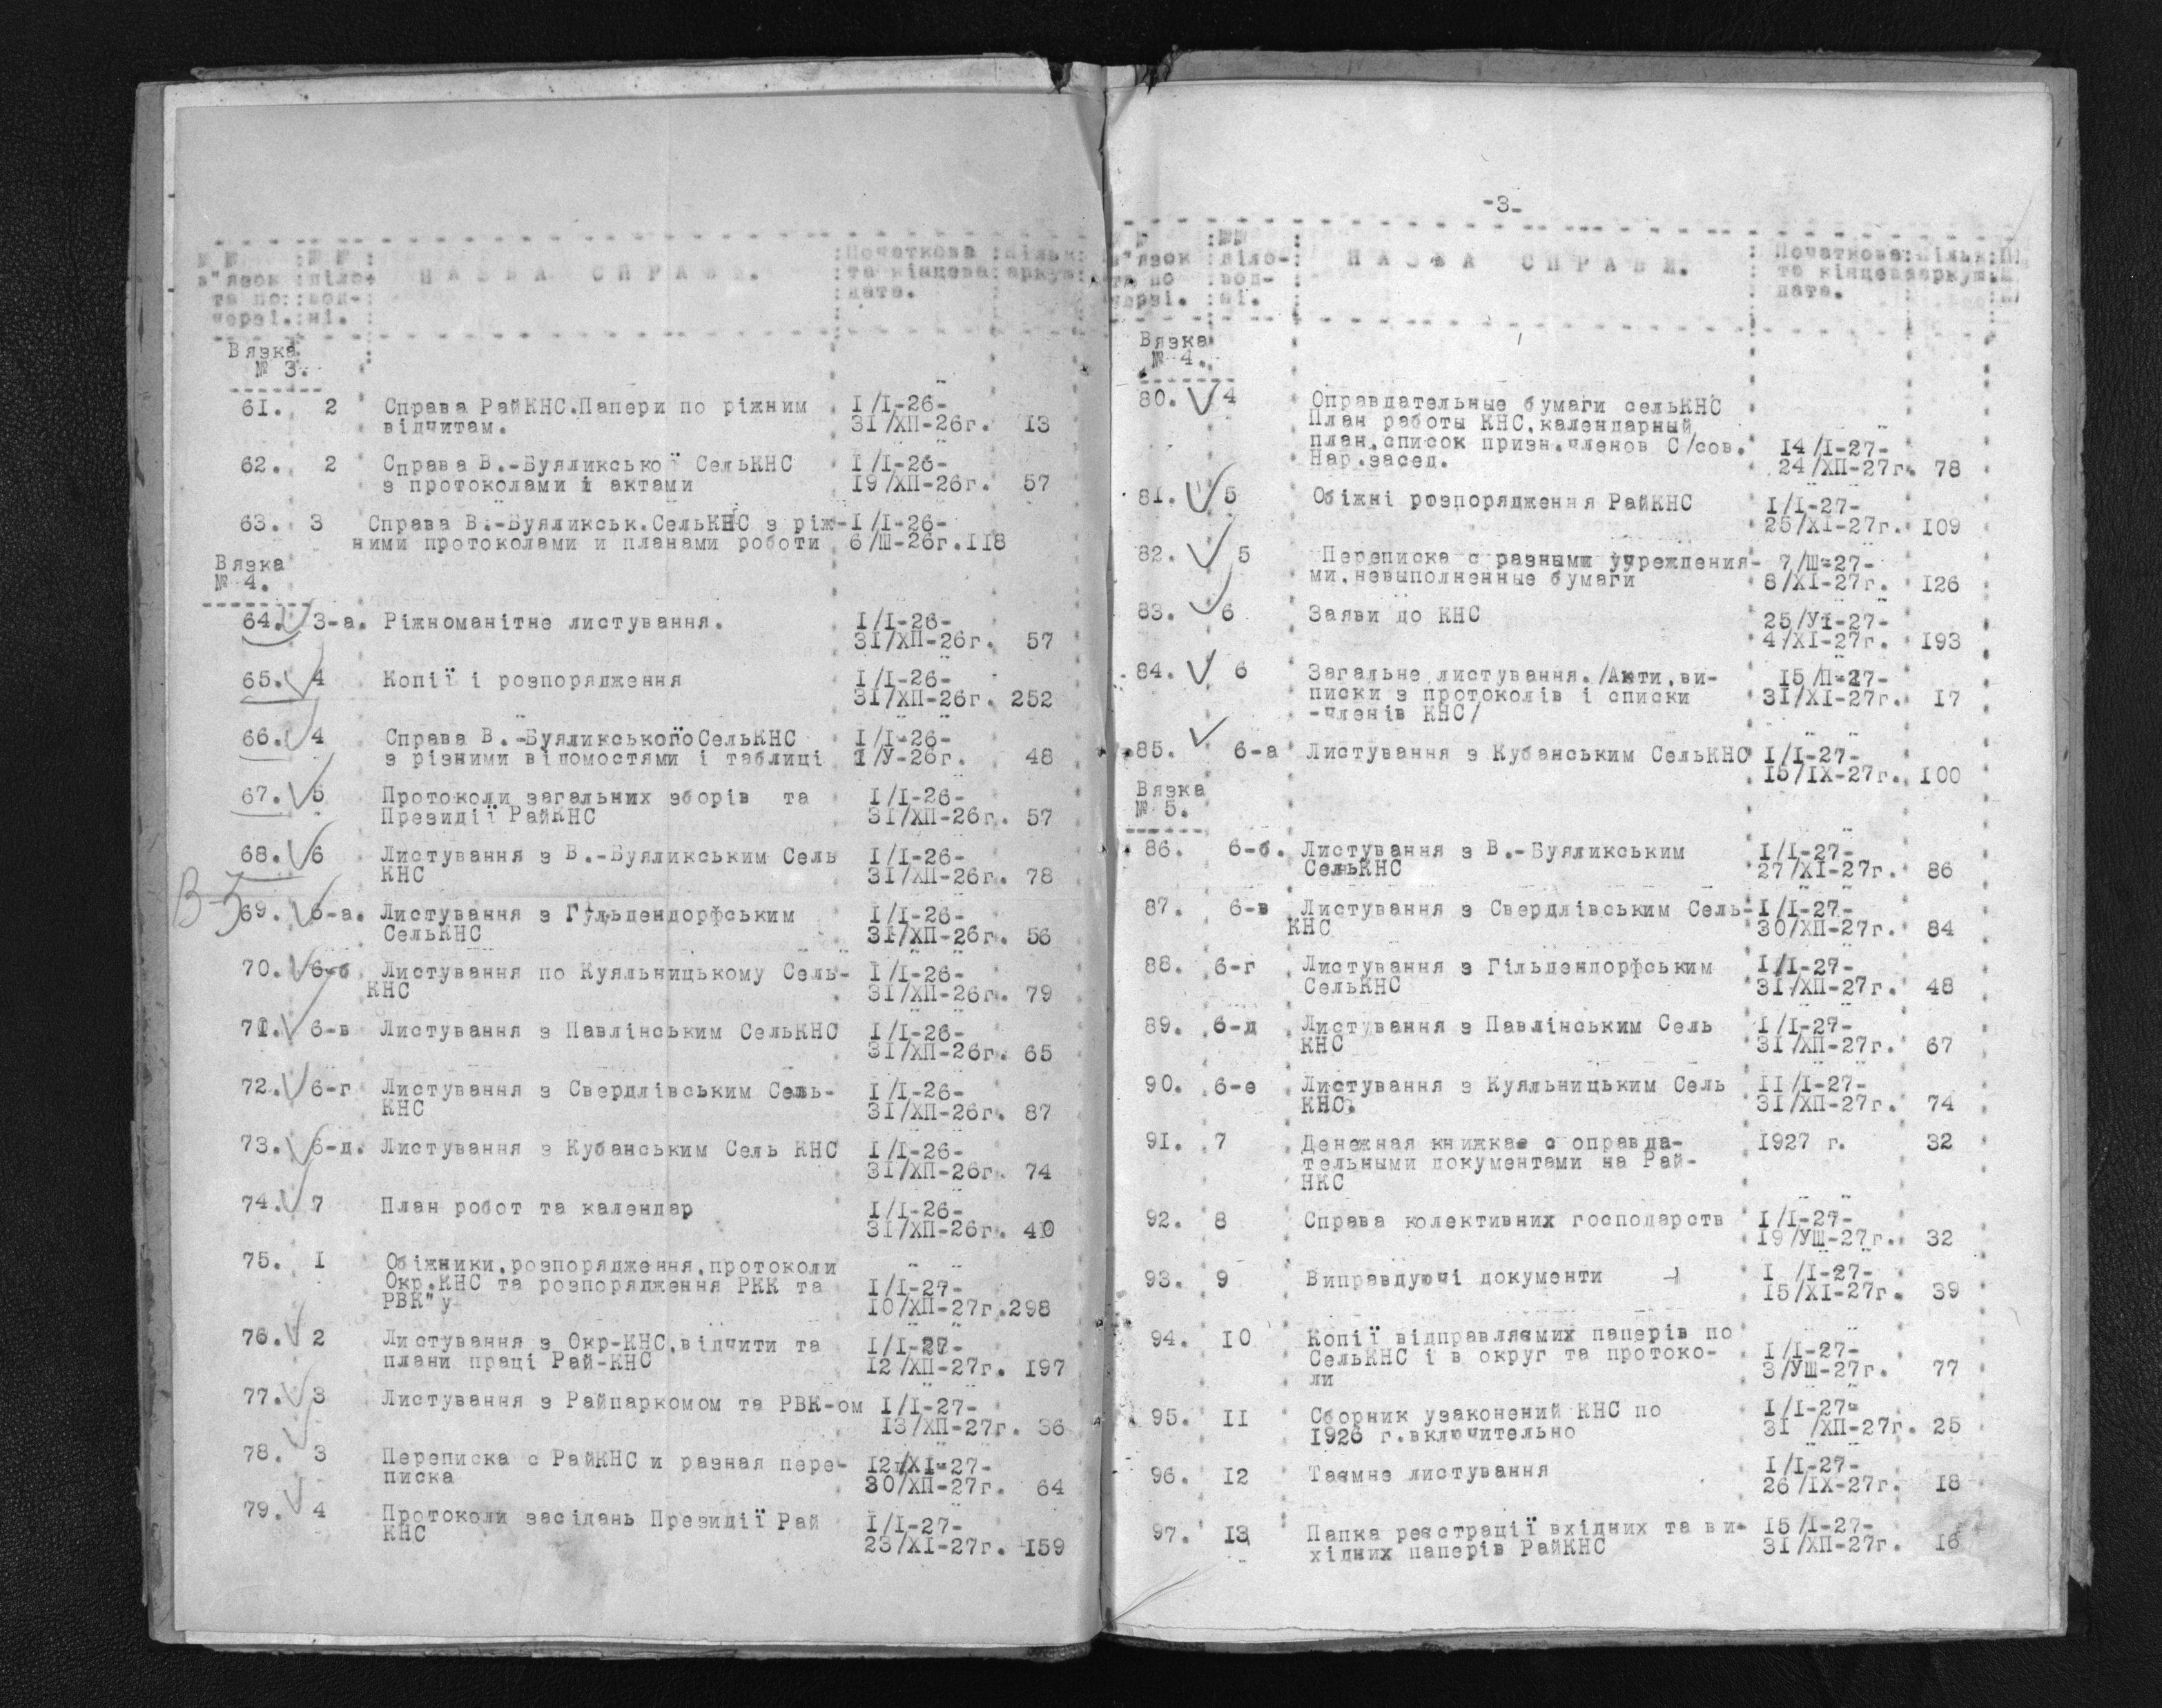 № №
в"язок
та по
черзі.
№ №
діло-
вод-
ні.
НАЗВА СПРАВИ.
Початкова
та кінцева
дата.
Кільк.
аркуш
Вязка
№ 3.
61. 2 Справа РайКНС.Папери по ріжним I/I-26-
відчитам. 31/ХП-26г. 13
62. 2 Справа В.-Буяликської СельКНС I/I-26-
з протоколами і актами 19/ХП-26г. 57
63. 3 Справа В.-Буяликськ.СельКНС з ріж- I/I-26-
ними протоколами и планами роботи 6/Ш-26г. 118
Вязка
№ 4.
64. 3-а. Ріжноманітне листування. I/I-26-
31/ХП-26г. 57
65. 4 Копії і розпорядження I/I-26-
31/ХП-26г. 252
66. 4 Справа В.-Буяликського СельКНС I/I-26-
з різними відомостями і таблиці 1/У-26г. 48
67. 5 Протоколи загальних зборів та I/I-26-
Президії РайКНС 31/ХП-26г. 57
68. 6 Листування з В.-Буяликським Сель I/I-26-
КНС 31/ХП-26г. 78
В-5
69. 6-а. Листування з Гільдендорфським I/I-26-
СельКНС 31/ХП-26г. 56
70. 6-б Листування по Куяльницькому Сель- I/I-26-
КНС 31/ХП-26г. 79
71. 6-в Листування з Павлінським СельКНС I/I-26-
31/ХП-26г. 65
72. 6-г Листування з Свердлівським Сель- I/I-26-
КНС 31/ХП-26г. 87
73. 6-д. Листування з Кубанським Сель КНС I/I-26-
31/ХП-26г. 74
74. 7 План робот та календар I/I-26-
31/ХП-26г. 40
75. I Обіжники,розпорядження,протоколи
Окр.КНС та розпорядження РКК та I/I-27-
РВК"у 10/ХП-27г. 298
76. 2 Листування з Окр-КНС,відчити та I/I-27-
плани праці Рай-КНС 12/ХП-27г. 197
77. 3 Листування з Райпаркомом та РВК-ом I/I-27-
13/ХП-27г. 36
78. 3 Переписка с РайКНС и разная пере- 12/ХI-27-
писка 30/ХП-27г. 64
79. 4 Протоколи засідань Президії Рай I/I-27-
КНС 23/ХI-27г. 159
-3-
в"язок
та по
черзі.
№№
діло-
вод-
ні.
НАЗВА СПРАВИ.
Початкова
та кінцева
дата.
Кільк.
аркуш.
Вязка
№ 4.
80. 4 Оправдательные бумаги сельКНС
План работы КНС,календарный
план,список призн.членов С/сов. 14/I-27-
Нар.засед. 24/ХП-27г. 78
81. 5 Обіжні розпорядження РайКНС I/I-27-
25/ХI-27г. 109
82. 5 Переписка с разными учреждения- 7/Ш-27-
ми,невыполненные бумаги 8/ХI-27г. 126
83. 6 Заяви до КНС 25/УI-27-
4/ХI-27г. 193
84. 6 Загальне листування./Акти,ви- 15/П-27-
писки з протоколів і списки 31/ХI-27г. 17
-членів КНС/
85. 6-а Листування з Кубанським СельКНС I/I-27-
15/IХ-27г. 100
Вязка
№ 5.
86. 6-б. Листування з В.-Буяликським I/I-27-
СельКНС 27/ХI-27г. 86
87. 6-в Листування з Свердлівським Сель- I/I-27-
КНС 30/ХП-27г. 84
88. 6-г Листування з Гільдендорфським I/I-27-
СельКНС 31/ХП-27г. 48
89. 6-д Листування з Павлінським Сель I/I-27-
КНС 31/ХП-27г. 67
90. 6-е Листування з Куяльницьким Сель II/I-27-
КНС. 31/ХП-27г. 74
91. 7 Денежная книжкае с оправда- 1927 г. 32
тельными документами на Рай-
НКС
92. 8 Справа колективних господарств I/I-27-
19/УШ-27г. 32
93. 9 Виправдуючі документи I /I-27-
15/ХI-27г. 39
94. 10 Копії відправляємих паперів по
СельКНС і в округ та протоко- I/I-27-
ли 3/УШ-27г. 77
95. II Сборник узаконений КНС по I/I-27-
1926 г.включительно 31 /ХП-27г. 25
96. 12 Таємне листування I/I-27-
26/IХ-27г. 18
97. 13 Папка реєстрації вхідних та ви- 15/I-27-
хідних паперів РайКНС 31/ХП-27г. 16